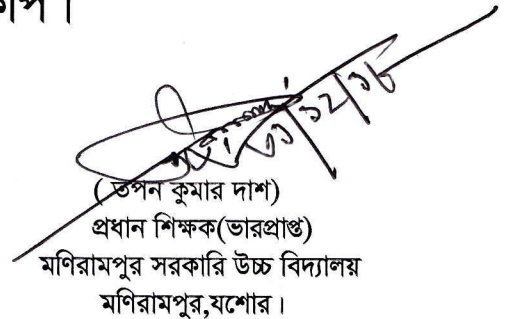 ৩১/১২/১৮
( তপন কুমার দাশ)
প্রধান শিক্ষক(ভারপ্রাপ্ত)
মণিরামপুর সরকারি উচ্চ বিদ্যালয়
মণিরামপুর,যশোর।